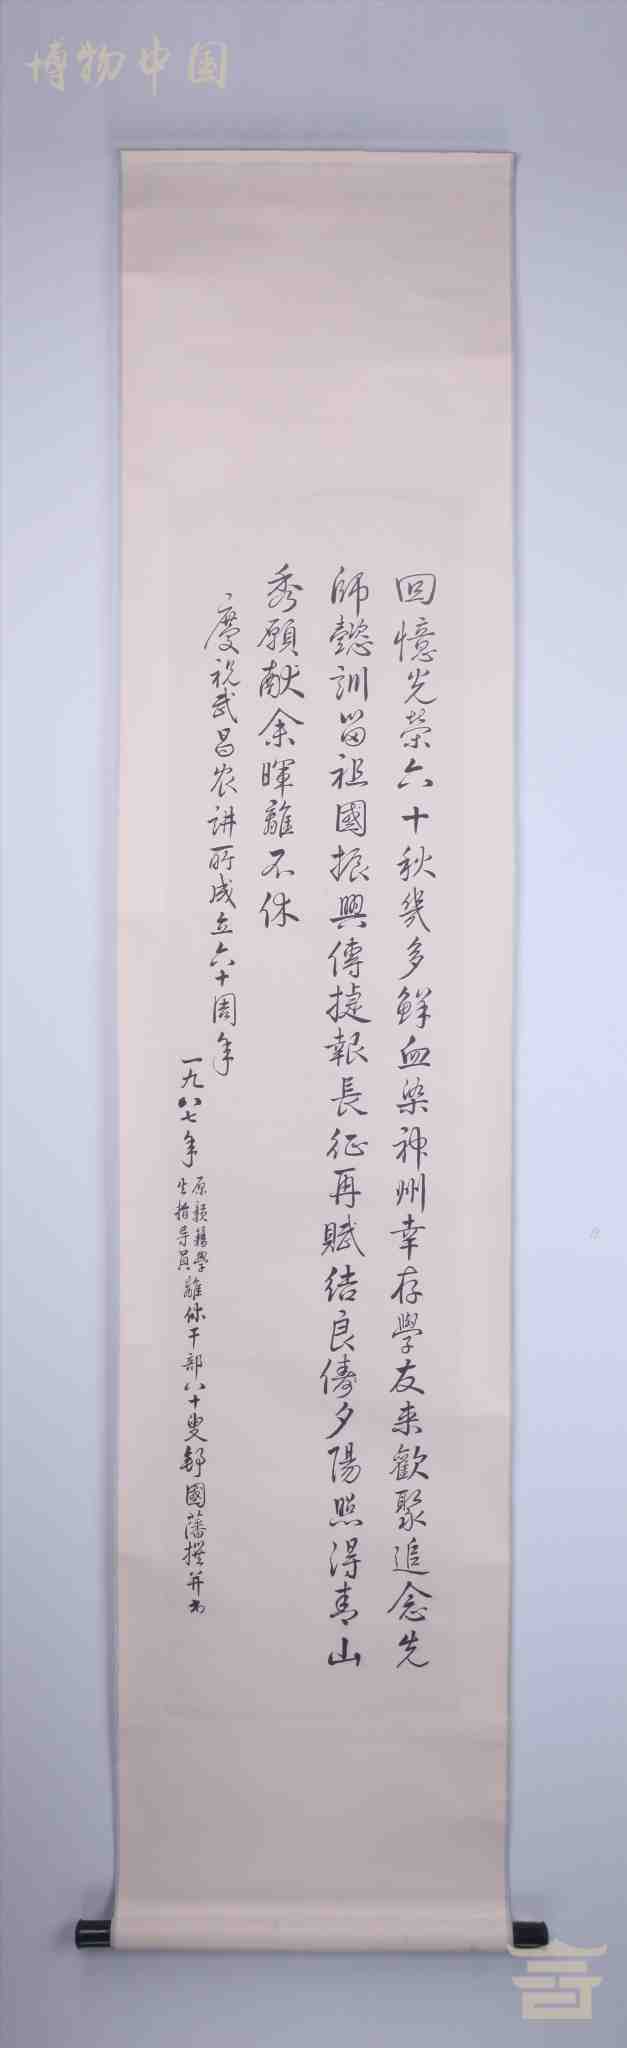 博物中国
回憶光荣六十秋幾多鮮血染神州幸存學友来歡聚追念先
師懿訓留祖國振興傳捷報長征再賦结良儔夕陽照得青山
秀願献余暉離不休
慶祝武昌农讲所成立六十周年
一九八七年
原赣籍學
生指导員
離休干部八十叟舒國藩撰并书